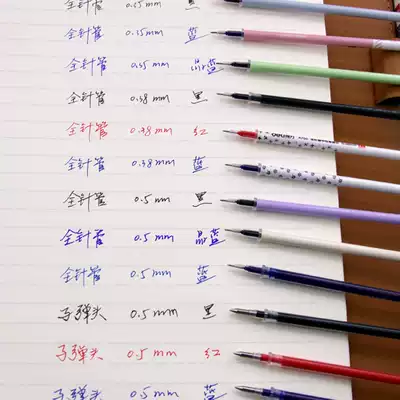 全针管 0.35mm 黑
全针管 0.35mm 蓝
全针管 0.35mm 晶蓝
全针管 0.38mm 黑
全针管 0.38mm 红
全针管 0.38mm 蓝
全针管 0.5mm 黑
全针管 0.5mm 晶蓝
全针管 0.5mm 蓝
子弹头 0.5mm 黑
子弹头 0.5mm 红
子弹头 0.5mm 蓝